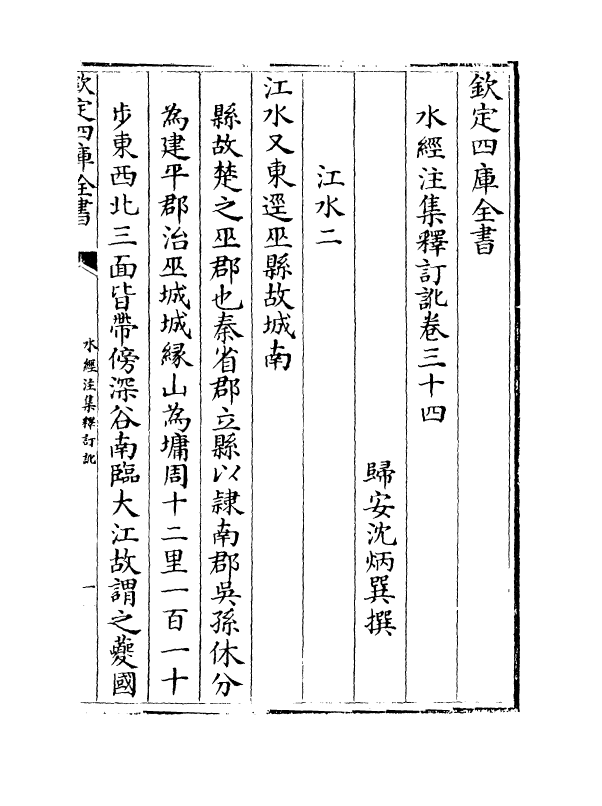 欽定四庫全書
水經注集釋訂訛卷三十四
歸安沈炳巽撰
江水二
江水又東逕巫縣故城南
縣故楚之巫郡也秦省郡立縣以隷南郡吳孫休分
為建平郡治巫城城緣山為墉周十二里一百一十
步東西北三面皆帶傍深谷南臨大江故謂之夔國
欽定四庫全書
水經注集釋訂訛
一